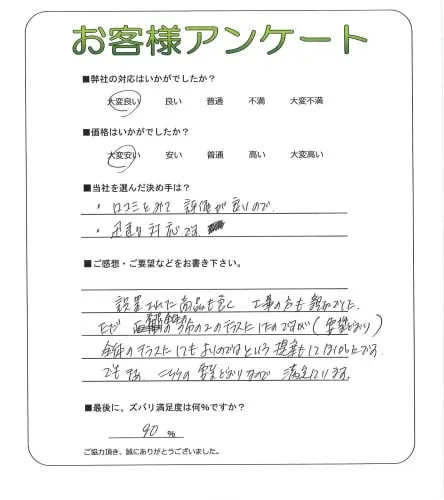 お客様アンケート
■弊社の対応はいかがでしたか?
大変良い 良い 普通 不満 大変不満
■価格はいかがでしたか?
大変安い 安い 普通 高い 大変高い
■当社を選んだ決め手は?
・口コミをみて 評価が良いので
・迅速な対応です
■ご感想・ご要望などをお書き下さい。
設置された商品も良く 工事の方も親切でした
ただ の2のテラスにしたのですが(要望どおり)
全体のテラスにしてもよいのではという提案もしてほしかったです。
でもまあ、こちらの要望どおりなので 満足しています。
■最後に、ズバリ満足度は何%ですか?
90 %
ご協力頂き、誠にありがとうございました。